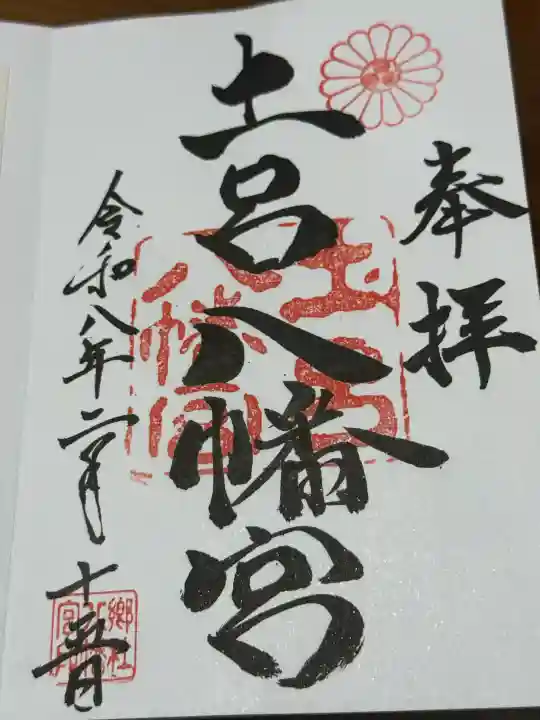 奉拝
土呂八幡宮
令和八年二月十五日